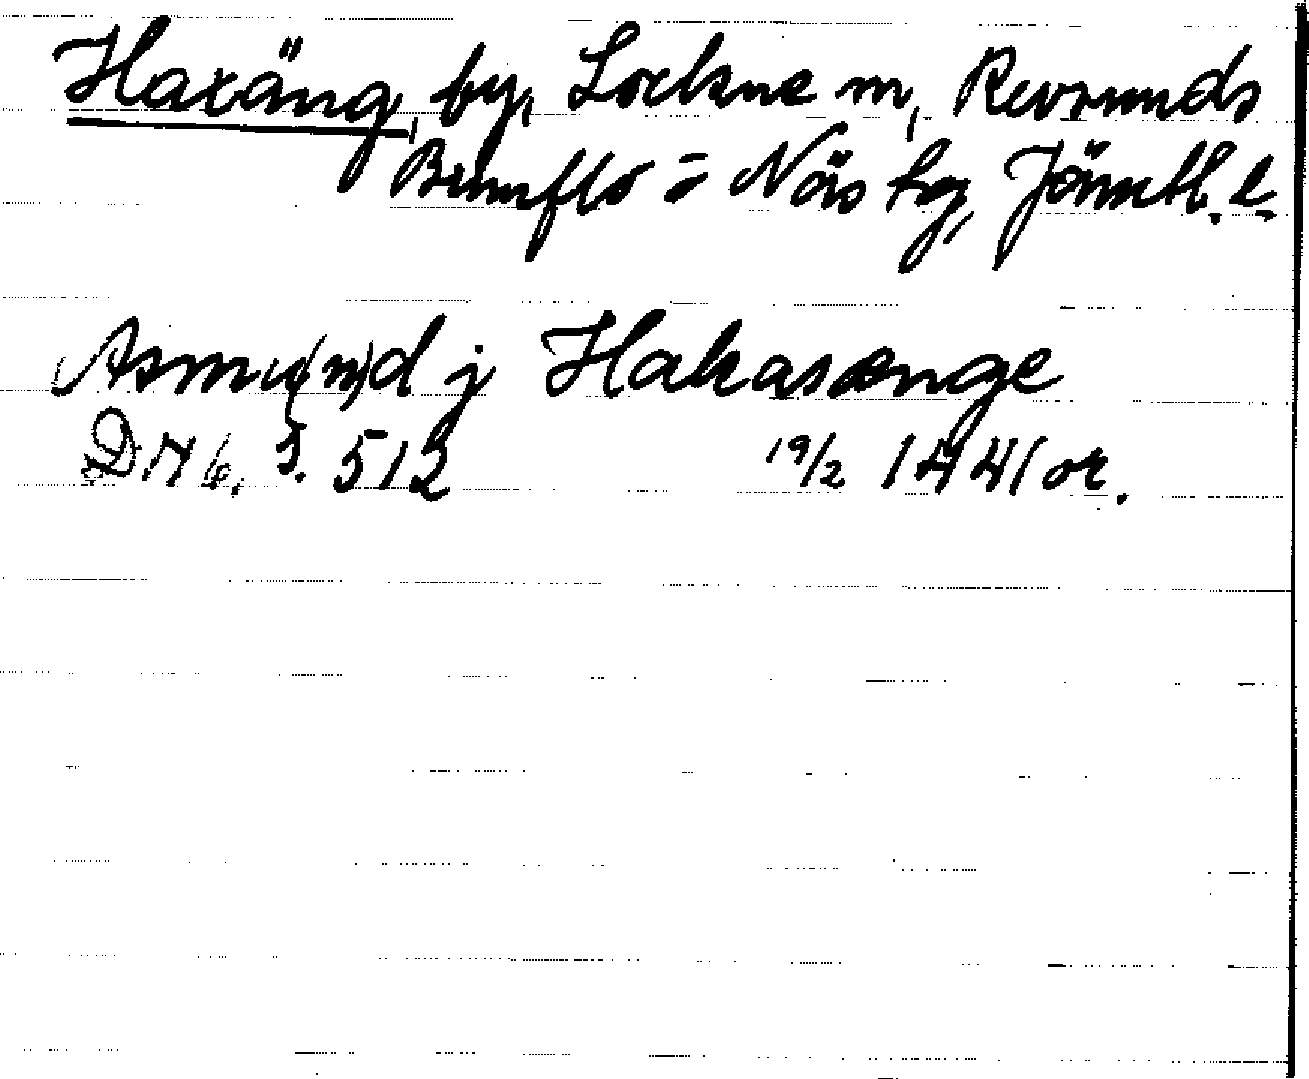 Haxäng, by, Lockne sn, Revsunds
Brunflo o Näs tg, Jämtl. l.
Asmu(n)d j Hakasænge
DN 6. S. 512 19/2 1441 or.